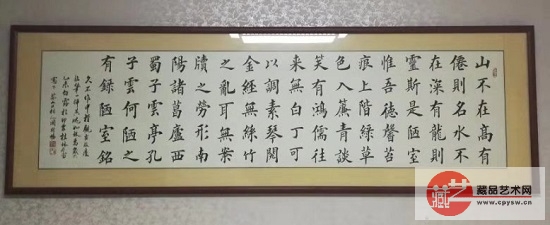 山不在高有
僊則名水不
在深有龍則
靈斯是陋室
惟吾德馨苔
痕上階緑草
色入簾青談
笑有鴻儒往
来無白丁可
以調素琴閲
金經無絲竹
之亂耳無案
牘之勞形南
陽諸葛廬西
蜀子雲亭孔
子雲何陋之
有録陋室銘
藏艺
藏品艺术网
www.cpysw.cn